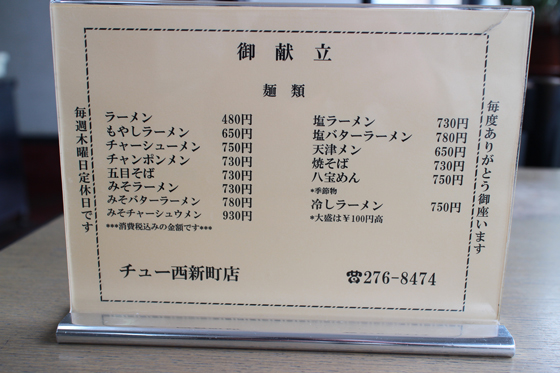 御献立
麺類
毎度ありがとう御座います
ラーメン 480円
もやしラーメン 650円
チャーシューメン 750円
チャンポンメン 730円
五目そば 730円
みそラーメン 730円
みそバターラーメン 780円
みそチャーシュウメン 930円
***消費税込みの金額です***
塩ラーメン 730円
塩バターラーメン 780円
天津メン 650円
焼そば 730円
八宝めん 750円
*季節物
冷しラーメン 750円
*大盛は¥100円高
毎週木曜日定休日です
チュー西新町店
☎276-8474